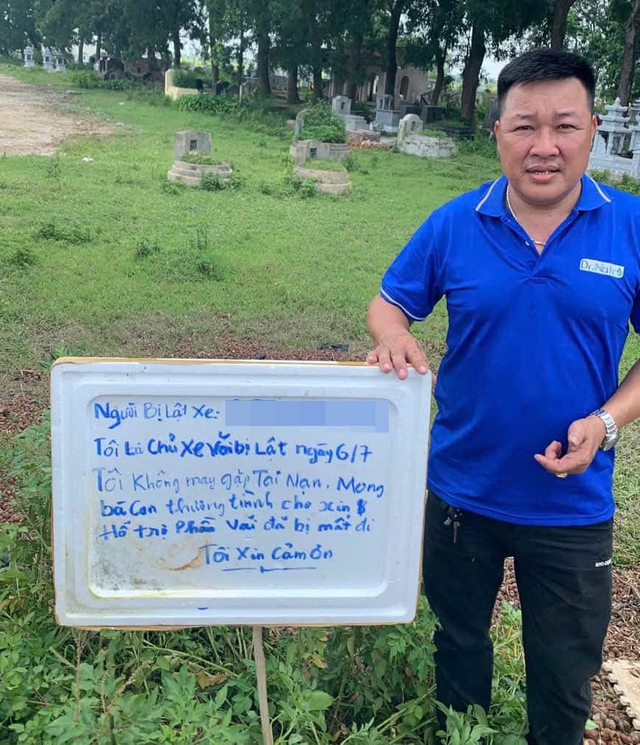 Người Bị Lật Xe:
Tôi Là Chủ Xe Vải bị Lật ngày 6/7
Tôi Không may gặp Tai Nạn. Mong
bà Con thương tình cho xin $
Hỗ trợ Phần Vải đã bị mất đi
Tôi Xin Cảm Ơn
Dr.Nano